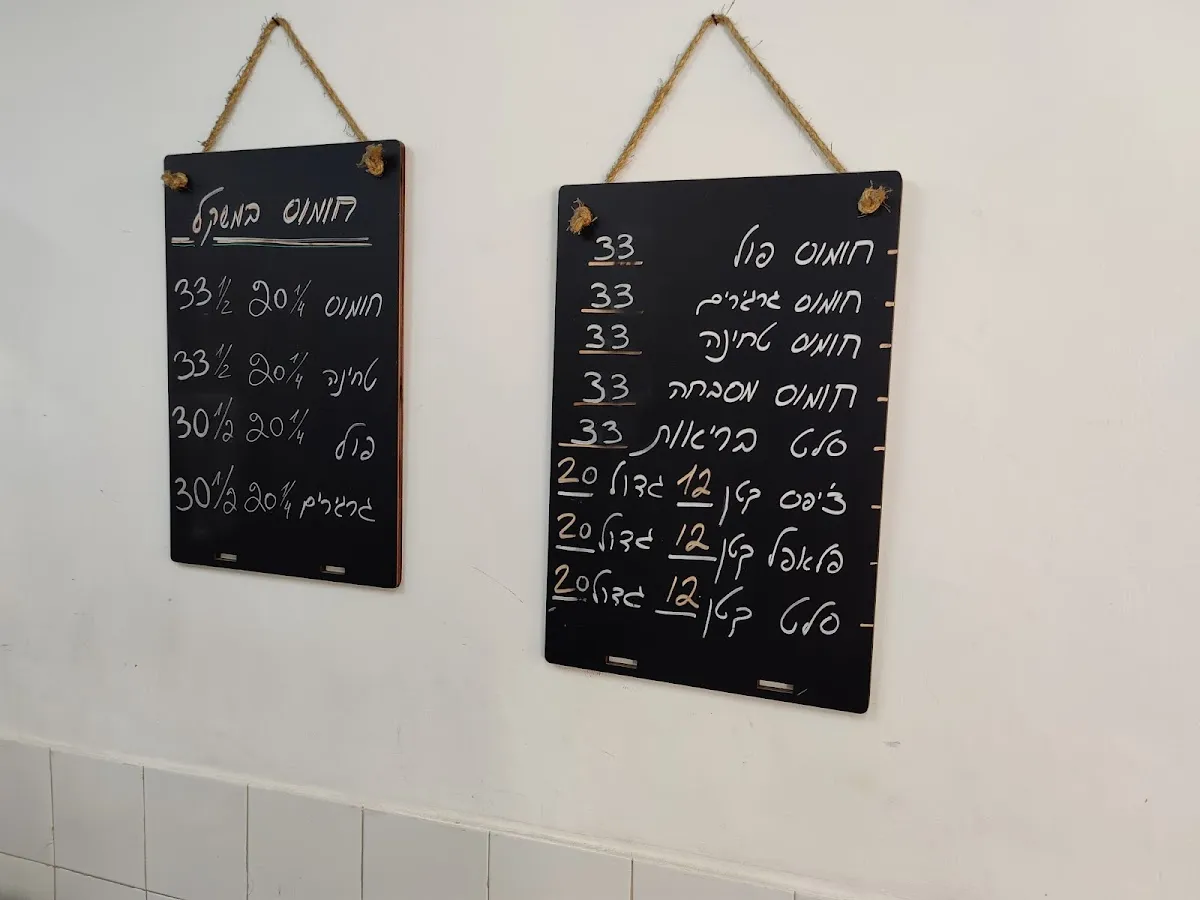 חומוס במשקל
חומוס 20 1/4 33 1/2
טחינה 20 1/4 33 1/2
פול 20 1/4 30 1/2
גרגרים 20 1/4 30 1/2
חומוס פול 33
חומוס גרגירים 33
חומוס טחינה 33
חומוס מסבחה 33
סלט בריאות 33
צ'יפס קטן 12 גדול 20
פלאפל קטן 12 גדול 20
סלט קטן 12 גדול 20